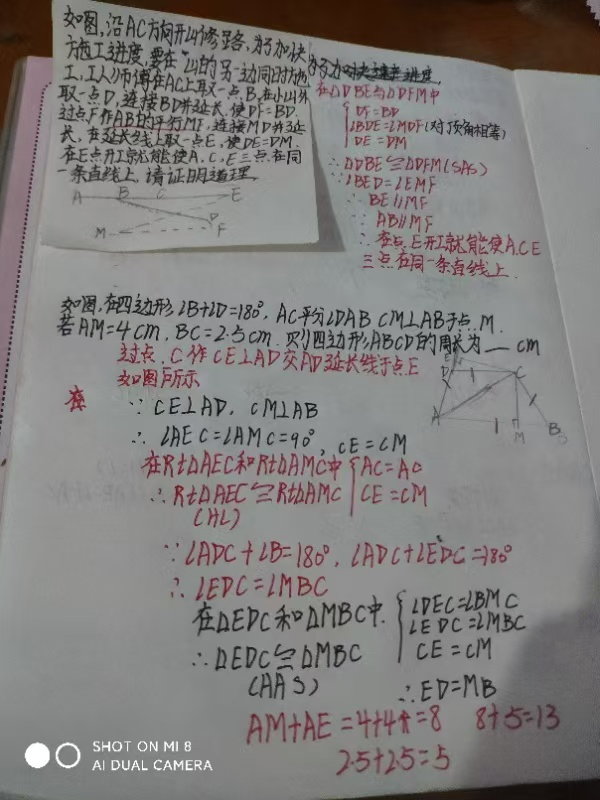 如图,沿AC方向开山修路,为了加快
施工进度,要在小山的另一边同时施
工,工人师傅在AC上取一点B,在小山外
取一点D,连接BD并延长,使DF=BD.
过点F作AB的平行MF,连接MD并延
长,在延长线上取一点E,使DE=DM.
在E点开工就能使A.C,E三点在同
一条直线上,请证明道理.
A B C E
D
M F
在△DBE与△DFM中
DF=BD
∠BDE=∠MDF(对顶角相等)
DE=DM
∴△DBE≌△DFM(SAS)
∴∠BED=∠EMF
∴BE∥MF
∵AB∥MF
∴在点E开工就能使A.C E
三点在同一条直线上.
如图,在四边形∠B+∠D=180°,AC平分∠DAB CM⊥AB于点M.
若AM=4cm,BC=2.5cm.则四边形ABCD的周长为__cm
过点.C作CE⊥AD交AD延长线于点E
如图所示
E
D C
A M B
∵CE⊥AD,CM⊥AB
∴∠AEC=∠AMC=90°,CE=CM
在Rt△AEC和Rt△AMC中
AC=AC
CE=CM
∴Rt△AEC≌Rt△AMC
(HL)
∵∠ADC+∠B=180°,∠ADC+∠EDC=180°
∴∠EDC=∠MBC
在△EDC和△MBC中.
∠DEC=∠BMC
∠EDC=∠MBC
CE=CM
∴△EDC≌△MBC
(AAS)
∴ED=MB
AM+AE=4+4=8 8+5=13
2.5+2.5=5
SHOT ON MI 8
AI DUAL CAMERA